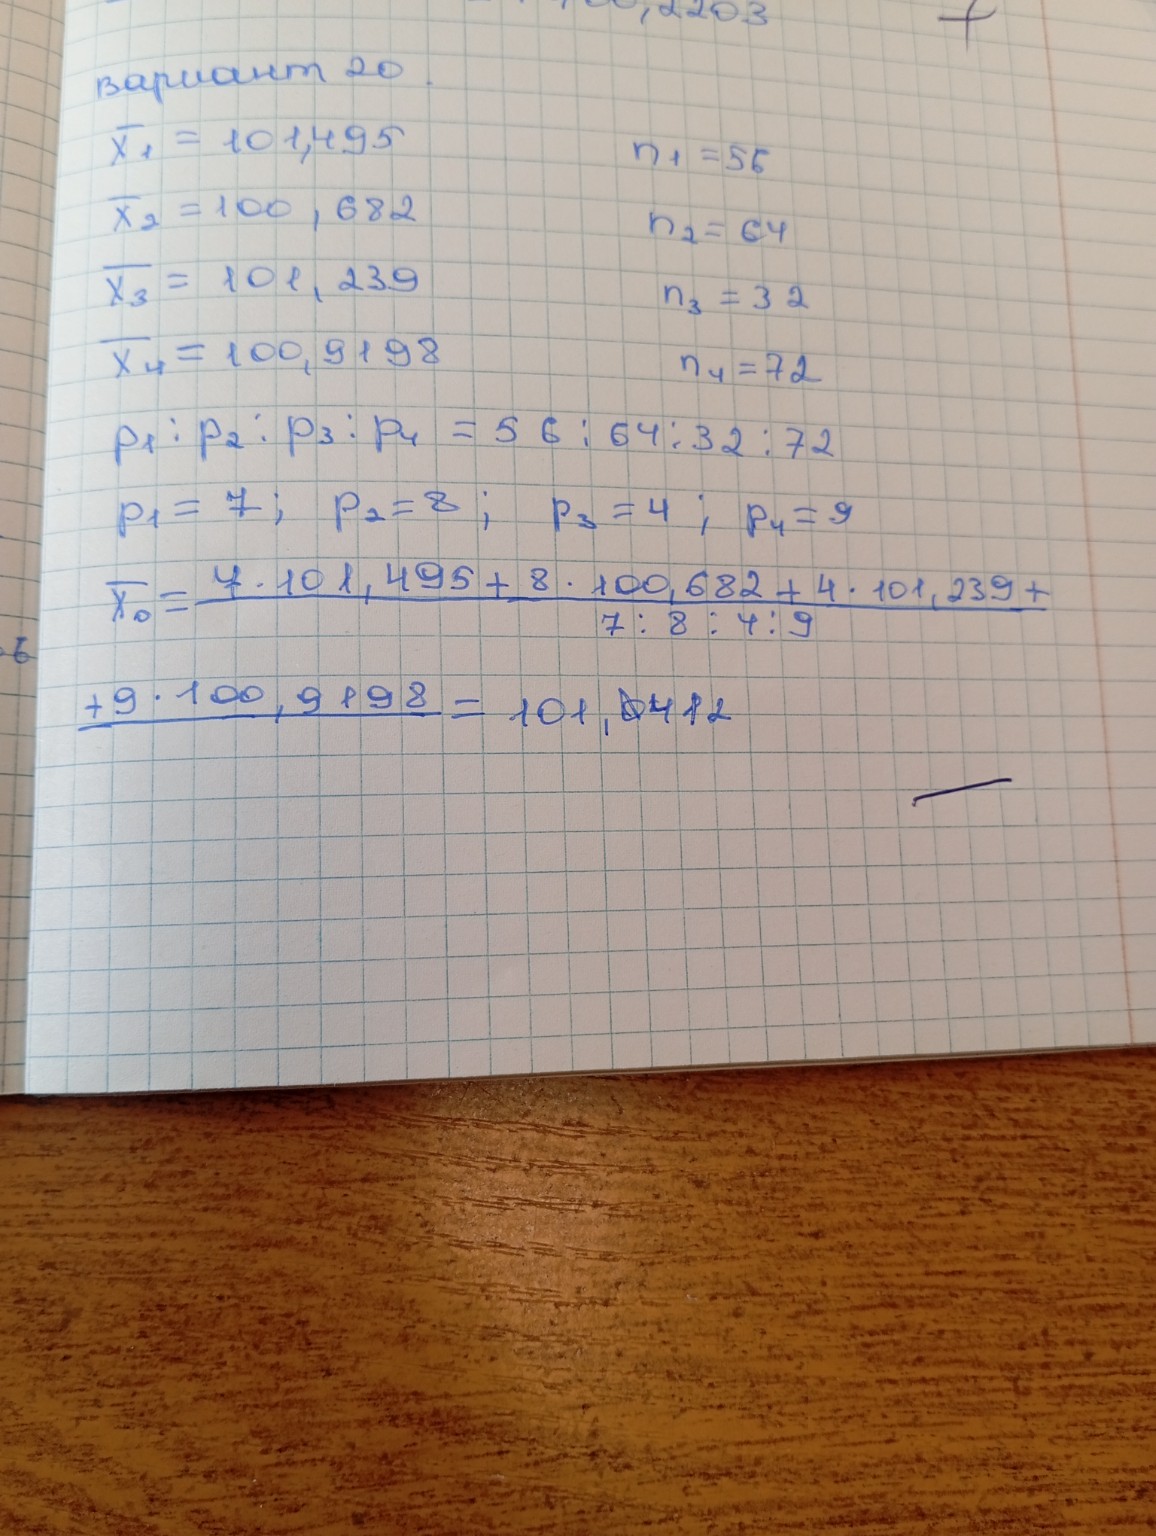 ,2203 +
вариант 20.
x̄₁ = 101,495 n₁ = 56
x̄₂ = 100,682 n₂ = 64
x̄₃ = 101,239 n₃ = 32
x̄₄ = 100,9198 n₄ = 72
p₁ : p₂ : p₃ : p₄ = 56 : 64 : 32 : 72
p₁ = 7; p₂ = 8; p₃ = 4; p₄ = 9
x̄₀ = 7·101,495 + 8·100,682 + 4·101,239 +
7 : 8 : 4 : 9
+ 9·100,9198 = 101,0412